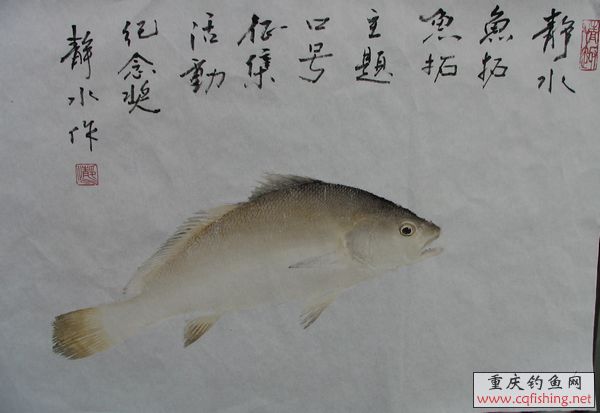 静水
魚拓
魚拓
主題
口号
征集
活動
纪念奖
静水作
重庆钓鱼网
www.cqfishing.net